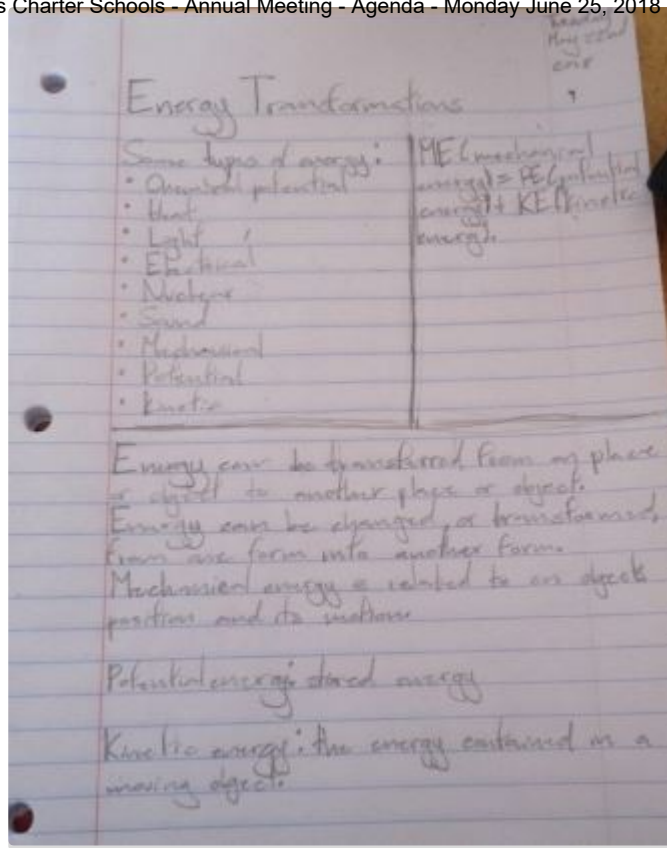 s Charter Schools - Annual Meeting - Agenda - Monday June 25, 2018
May 22nd
Energy Transformations
Some types of energy:
• Chemical potential
• Heat
• Light
• Electrical
• Nuclear
• Sound
• Mechanical
• Potential
• Kinetic
ME (mechanical
energy) = PE (potential
energy) + KE (kinetic
energy).
Energy can be transferred from on place
or object to another place or object.
Energy can be changed, or transformed,
from one form into another form.
Mechanical energy is related to an objects
position and its motion.
Potential energy: stored energy
Kinetic energy: the energy contained in a
moving object.